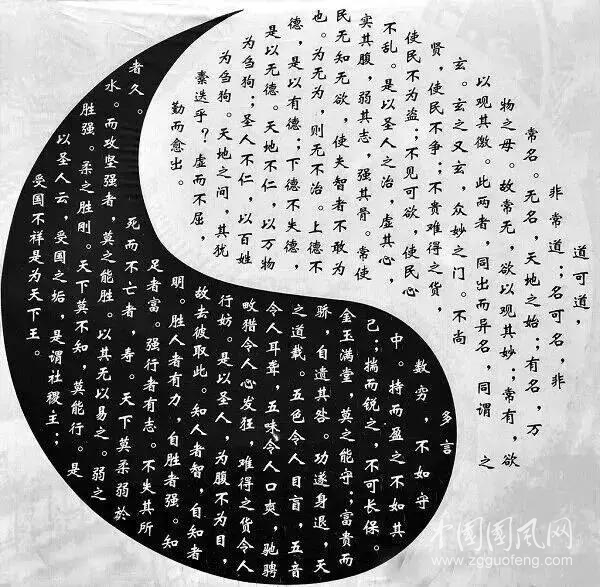 道可道，
非常道；名可名，非
常名。无名，天地之始；有名，万
物之母。故常无，欲以观其妙；常有，欲
以观其徼。此两者，同出而异名，同谓之
玄。玄之又玄，众妙之门。不尚
贤，使民不争；不贵难得之货，
使民不为盗；不见可欲，使民心
不乱。是以圣人之治，虚其心，
实其腹，弱其志，强其骨。常使
民无知无欲，使夫智者不敢为
也。为无为，则无不治。上德不
德，是以有德；下德不失德，
是以无德。天地不仁，以万物
为刍狗；圣人不仁，以百姓
为刍狗。天地之间，其犹
乎？虚而不屈，
勤而愈出。
多言
数穷，不如守
中。持而盈之不如其
己；揣而锐之，不可长保。
金玉满堂，莫之能守；富贵而
骄，自遗其咎。功遂身退，天
之道哉。五色令人目盲，五音
令人耳聋，五味令人口爽，驰骋
畋猎令人心发狂，难得之货令人
行妨。是以圣人，为腹不为目，
故去彼取此。知人者智，自知者
明。胜人者有力，自胜者强。知
足者富。强行者有志。不失其所
者久。死而不亡者，寿。天下莫柔弱於
水。而攻坚强者，莫之能胜。以其无以易之。弱之
胜强。柔之胜刚。天下莫不知，莫能行。是
以圣人云，受国之垢，是谓社稷主；
受国不祥是为天下王。
中国国风网
www.zgguofeng.com